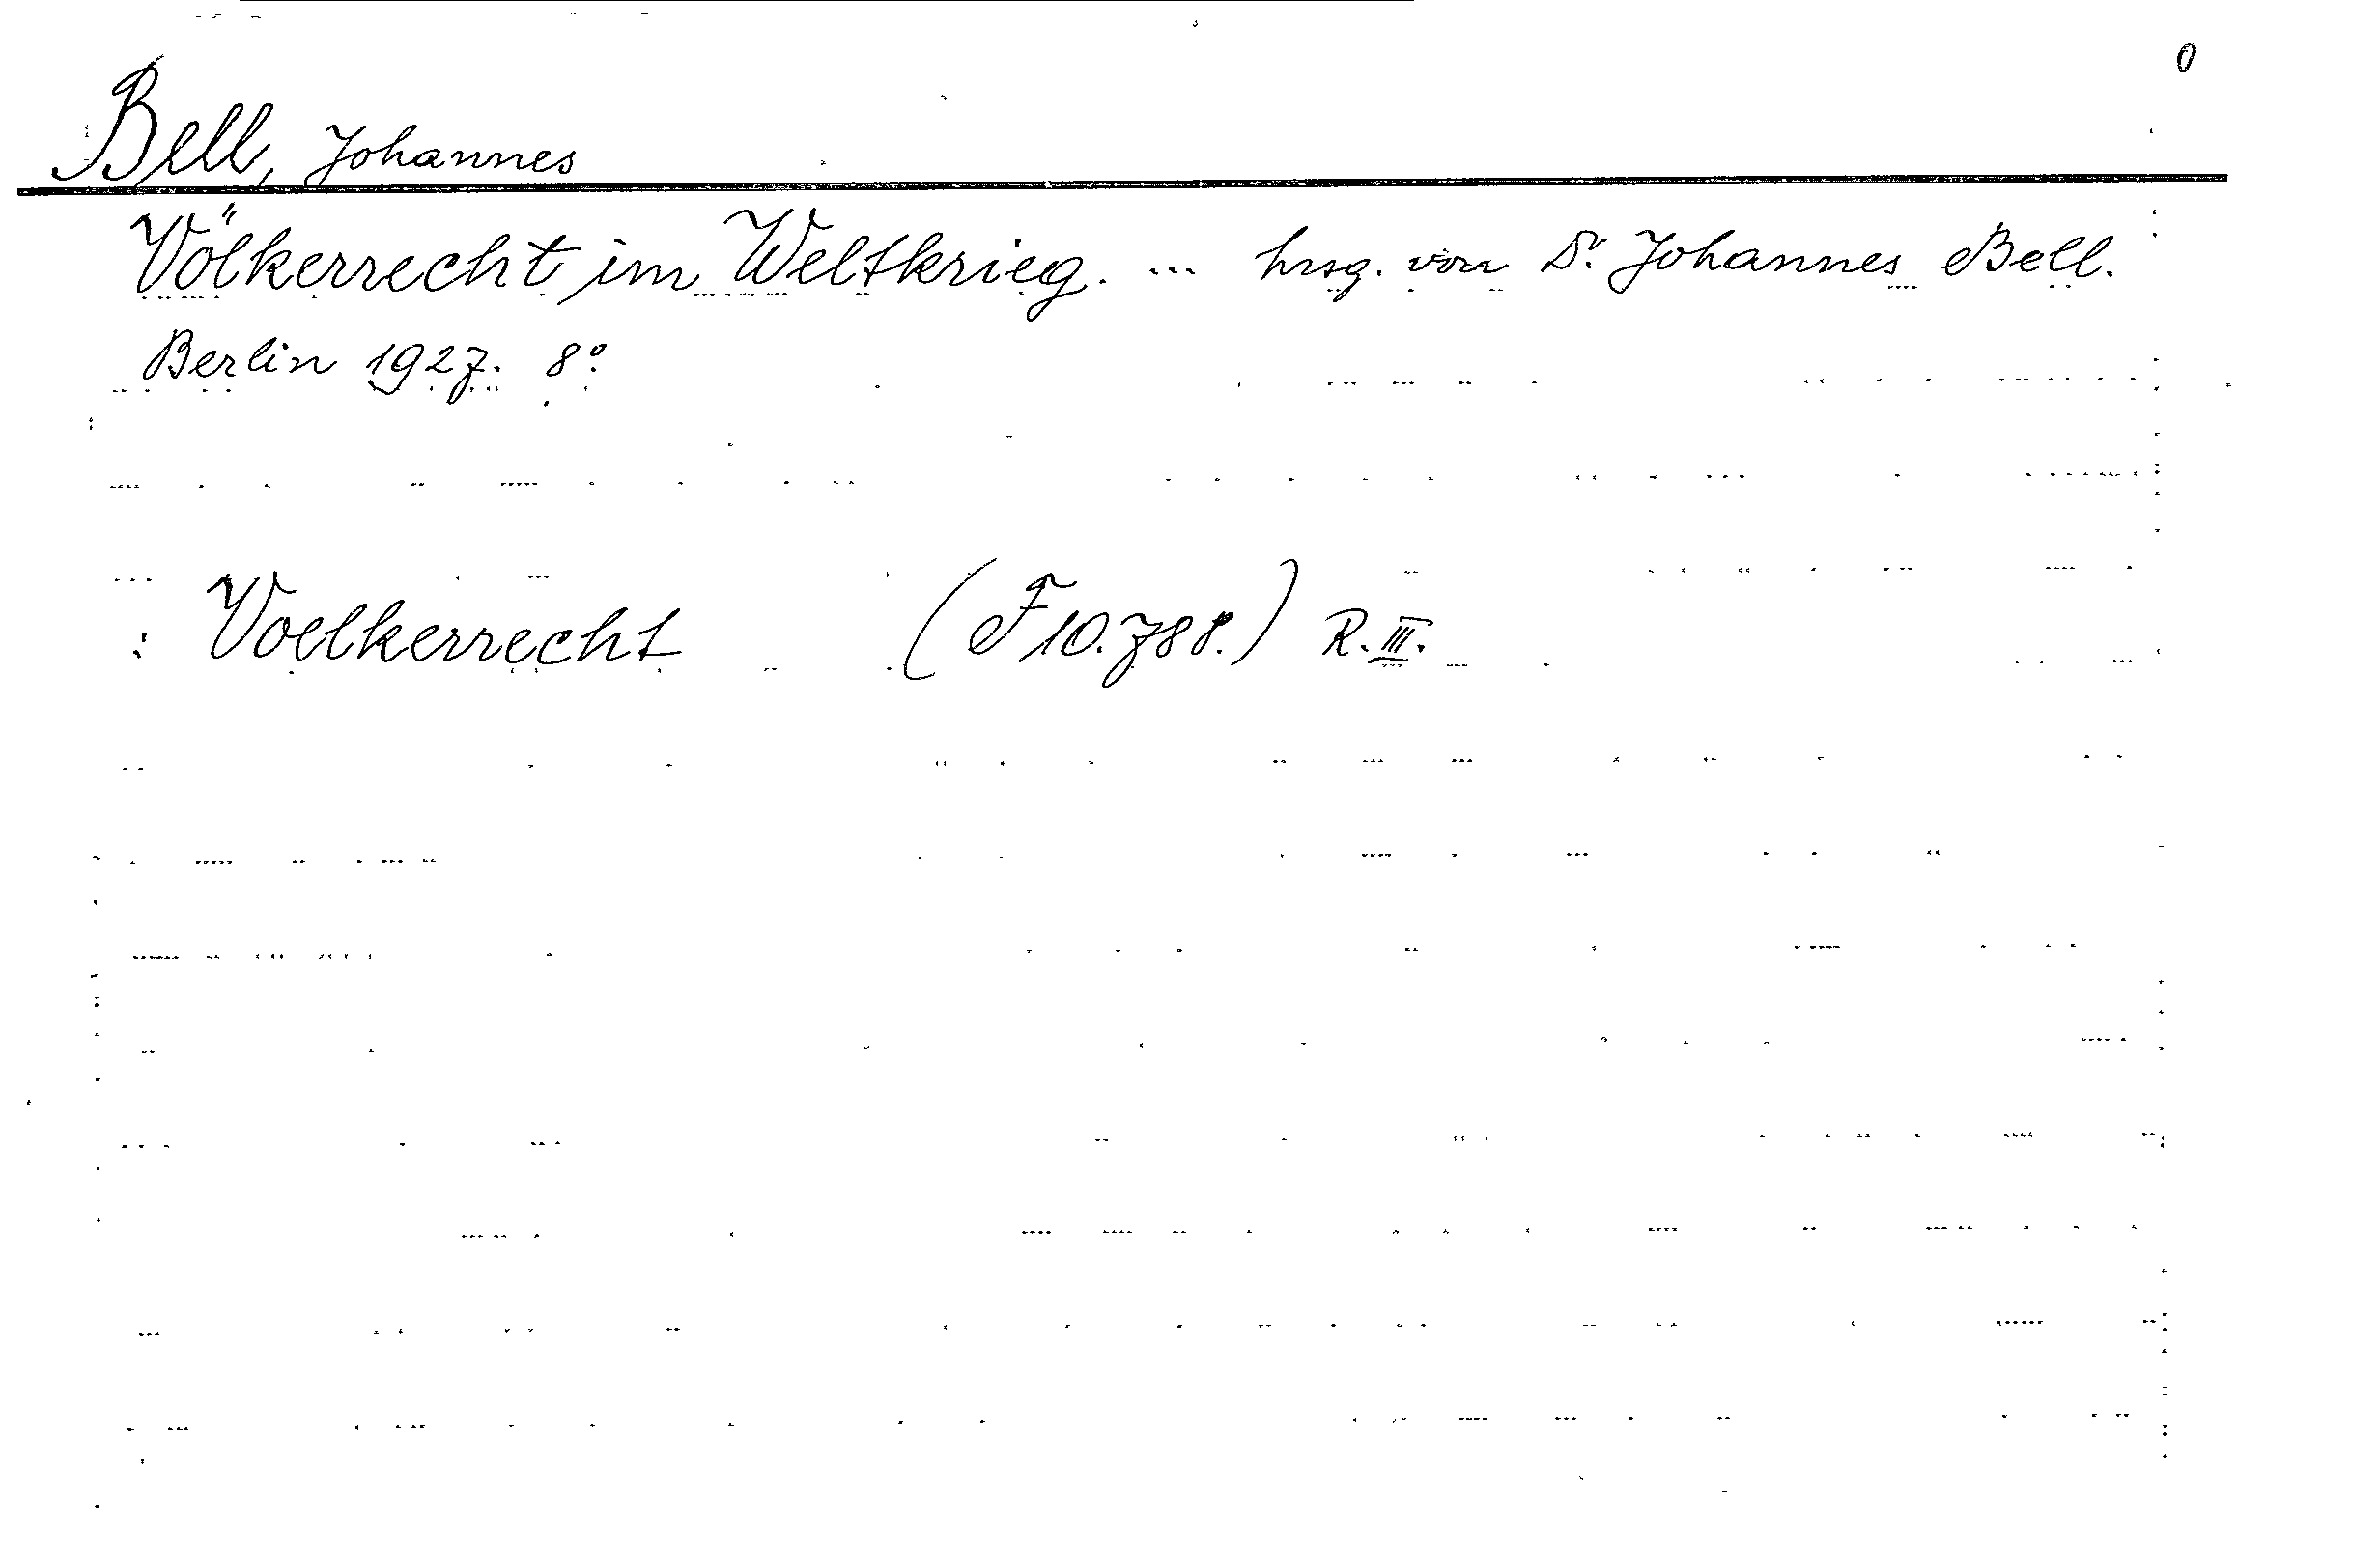 0
Bell, Johannes
Völkerrecht im Weltkrieg. ... hrsg. von Dr. Johannes Bell.
Berlin 1927. 8°.
: Voelkerrecht (F 10.788.) R. III.